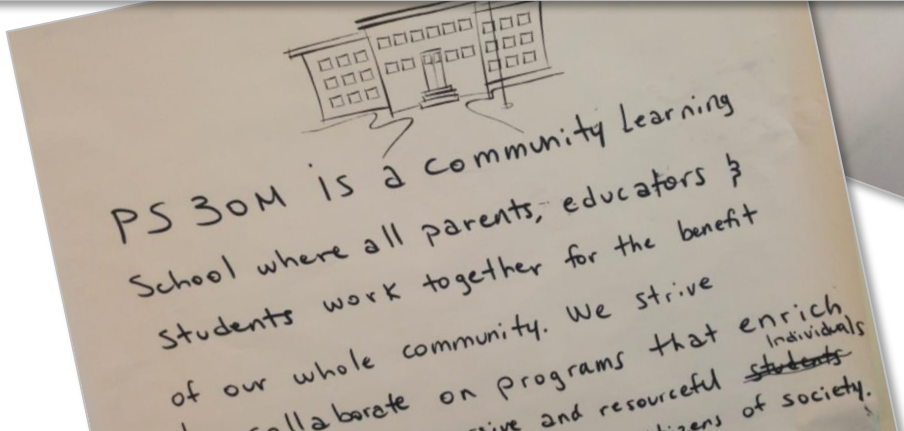 PS 30M is a community Learning
School where all parents, educators &
students work together for the benefit
of our whole community. We strive
collaborate on programs that enrich
Individuals
and resourceful students
of society.